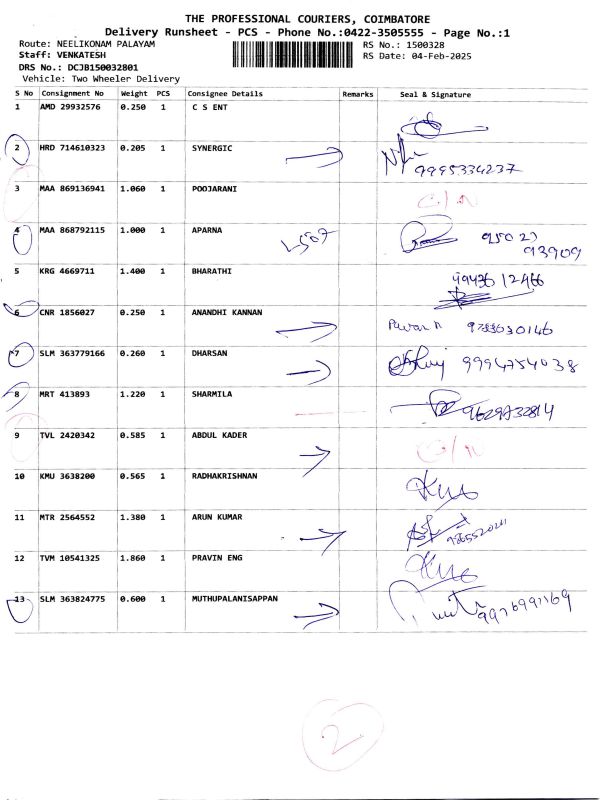 THE PROFESSIONAL COURIERS, COIMBATORE
Delivery Runsheet - PCS - Phone No.:0422-3505555 - Page No.:1
Route: NEELIKONAM PALAYAM RS No.: 1500328
Staff: VENKATESH RS Date: 04-Feb-2025
DRS No.: DCJB150032801
Vehicle: Two Wheeler Delivery
S No Consignment No Weight PCS Consignee Details Remarks Seal & Signature
1 AMD 29932576 0.250 1 C S ENT
2 HRD 714610323 0.205 1 SYNERGIC 9995334237
3 MAA 869136941 1.060 1 POOJARANI
4 MAA 868792115 1.000 1 APARNA 95029
93909
5 KRG 4669711 1.400 1 BHARATHI 9943612466
6 CNR 1856027 0.250 1 ANANDHI KANNAN
7 SLM 363779166 0.260 1 DHARSAN 9994754038
8 MRT 413893 1.220 1 SHARMILA 9629732814
9 TVL 2420342 0.585 1 ABDUL KADER
10 KMU 3638200 0.565 1 RADHAKRISHNAN
11 MTR 2564552 1.380 1 ARUN KUMAR
12 TVM 10541325 1.860 1 PRAVIN ENG
13 SLM 363824775 0.600 1 MUTHUPALANISAPPAN 9976991169
2